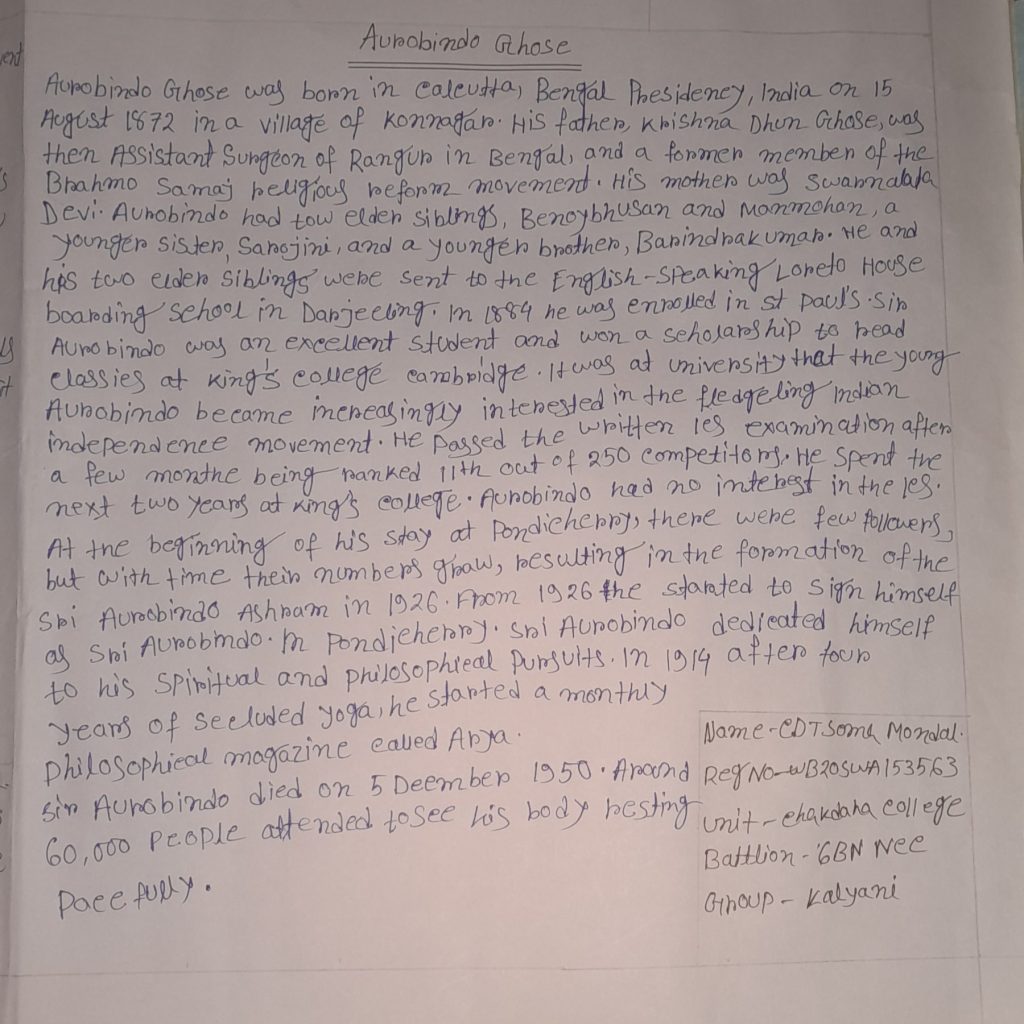 Aurobindo Ghose
Aurobindo Ghose was born in calcutta, Bengal Presidency, India on 15
August 1872 in a village of Konnagar. His father, Krishna Dhun Ghose, was
then Assistant Surgeon of Rangur in Bengal, and a former member of the
Brahmo Samaj religious reform movement. His mother was Swarnalata
Devi. Aurobindo had tow elder siblings, Benoybhusan and Manmohan, a
younger sister, Sarojini, and a younger brother, Barindrakumar. He and
his two elder siblings were sent to the English-speaking Loreto House
boarding school in Darjeeling. In 1884 he was enrolled in st paul's. Sir
Aurobindo was an excellent student and won a scholarship to read
classies at King's college cambridge. It was at university that the young
Aurobindo became increasingly interested in the fledgeling indian
independence movement. He passed the written Ies examination after
a few monthe being ranked 11th out of 250 competitors. He spent the
next two years at king's college. Aurobindo had no interest in the Ies.
At the beginning of his stay at Pondicherry, there were few followers,
but with time their numbers graw, resulting in the formation of the
Sri Aurobindo Ashram in 1926. From 1926 the starated to sign himself
as Sri Aurobindo. In Pondicherry. Sri Aurobindo dedicated himself
to his spiritual and philosophical pursuits. In 1914 after four
years of secluded yoga, he started a monthly
philosophical magazine called Arya.
sir Aurobindo died on 5 Deember 1950. Around
60,000 people attended to see his body resting
Pacefully.
Name - CDT Soma Mondal.
Reg No - WB20SWA153563
Unit - chakdaha college
Battlion - 6BN Ncc
Group - Kalyani